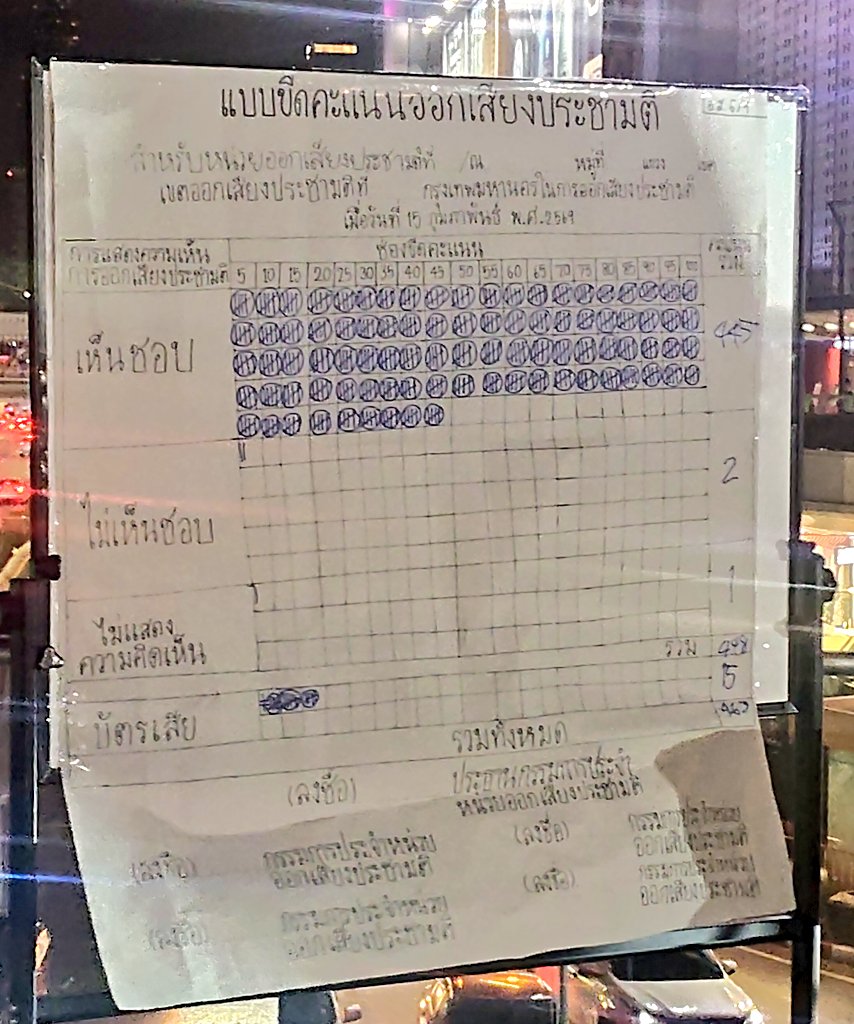 แบบขีดคะแนนออกเสียงประชามติ
สำหรับหน่วยออกเสียงประชามติที่ /ณ หมู่ที่ แขวง เขต
เขตออกเสียงประชามติที่ กรุงเทพมหานครในการออกเสียงประชามติ
เมื่อวันที่ 15 กุมภาพันธ์ พ.ศ.2569
การแสดงความเห็น ช่องขีดคะแนน
การออกเสียงประชามติ 5 10 15 20 25 30 35 40 45 50 55 60 65 70 75 80 85 90 95 100 รวม
เห็นชอบ 445
ไม่เห็นชอบ 2
ไม่แสดง 1
ความคิดเห็น รวม
บัตรเสีย 5
รวมทั้งหมด
(ลงชื่อ) ประธานกรรมการประจำ
หน่วยออกเสียงประชามติ
(ลงชื่อ) กรรมการประจำหน่วย
ออกเสียงประชามติ
(ลงชื่อ) กรรมการประจำหน่วย
ออกเสียงประชามติ
(ลงชื่อ) กรรมการประจำหน่วย
ออกเสียงประชามติ
(ลงชื่อ) กรรมการประจำหน่วย
ออกเสียงประชามติ